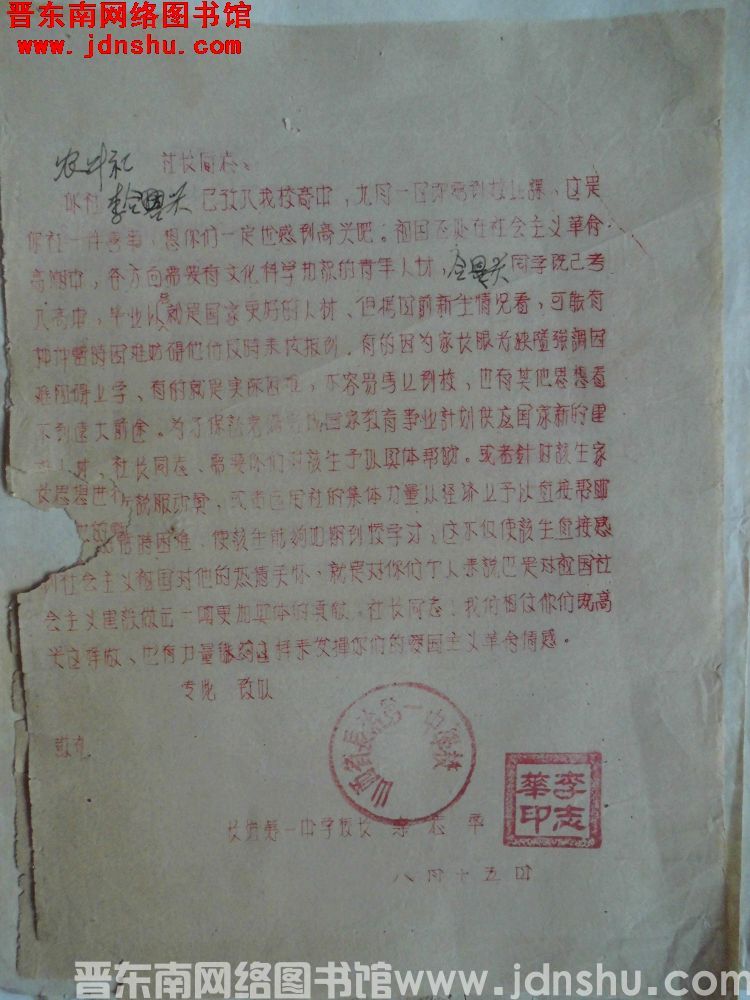 晋东南网络图书馆
www.jdnshu.com
农井社 社长同志：
你社李全兴 已考入我校高中，九月一日即需到校上课，这是
你社一件喜事，想你们一定也感到高兴吧。祖国正处在社会主义革命
高潮中，各方面需要有文化科学知识的青年人材，同学既已考
入高中，毕业后就是国家更好的人材，但据目前新生情况看，可能有
种种暂时困难妨碍他们及时来校报到，有的因为家长眼光狭隘强调困
难阻碍上学，有的就是实际困难，不容易马上到校，也有其他思想看
不到远大前途。为了保证完成国家教育事业计划供应国家新的建
社长同志，需要你们对该生予以具体帮助。或者针对该生家
长思想进行说服动员，或者运用社的集体力量从经济上予以直接帮助
暂时困难，使该生能够如期到校学习，这不仅使该生直接感
到社会主义祖国对他的热情关怀，就是对你们个人来说也是对祖国社
会主义建设做出一项更加具体的贡献。社长同志！我们相信你们既高
兴这样做，也有力量做到这样来发挥你们的爱国主义革命情感。
专此 致以
敬礼
山西省长治第一中学校
长治第一中学校长 李志华
李志華印
八月十五日
晋东南网络图书馆www.jdnshu.com